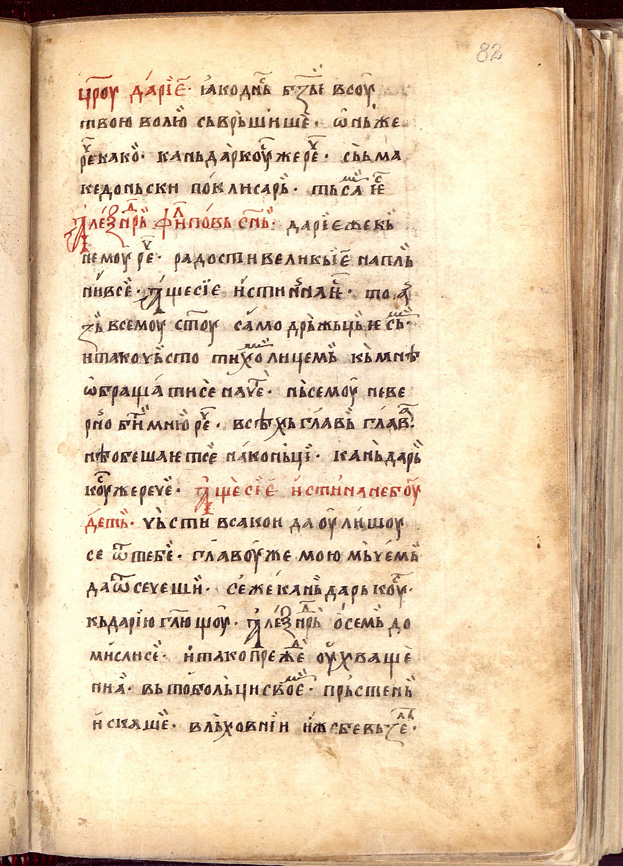 82
цр҃оу дарїе· ꙗко дн҃ь бз҃ы всоу
твою волю съврьшише· ѡнь же
рече како· каньдаркоуже ре҃· сьꙁ ма
кедоньски поклисарь· ть са іе҃
Алеѯнⷣрь фїлиповь сн҃ь· дарїе же кь
немоу ре҃· радости великые напль
нивсе· Аще сїе истинна іе· то аꙁ
вьсемоу свтоу самодрьжьць есⷨь
и тако чьсто тихолицемь кь мнѣ
ѡбращати се начѐ· нь семоу неве
рно бити мню ре҃· всѣхь главь глав
нѣ обешают се на коньци· каньдарь
коуⷭ же рече· Аще сїе истина не боу
деть· чьсти всакои да оулишоу
се ѿ тебе· главоу же мою мьчемь
да ѿсечеши· се же каньдарькоуⷭ·
кь дарїю гл҃ющоу· Алеѯнⷣрь о семь до
мисли се· и тако преⷤⷣе оухваще
ниа· вь тоболци своеⷨ· прьстень
искаше· вльховнїи